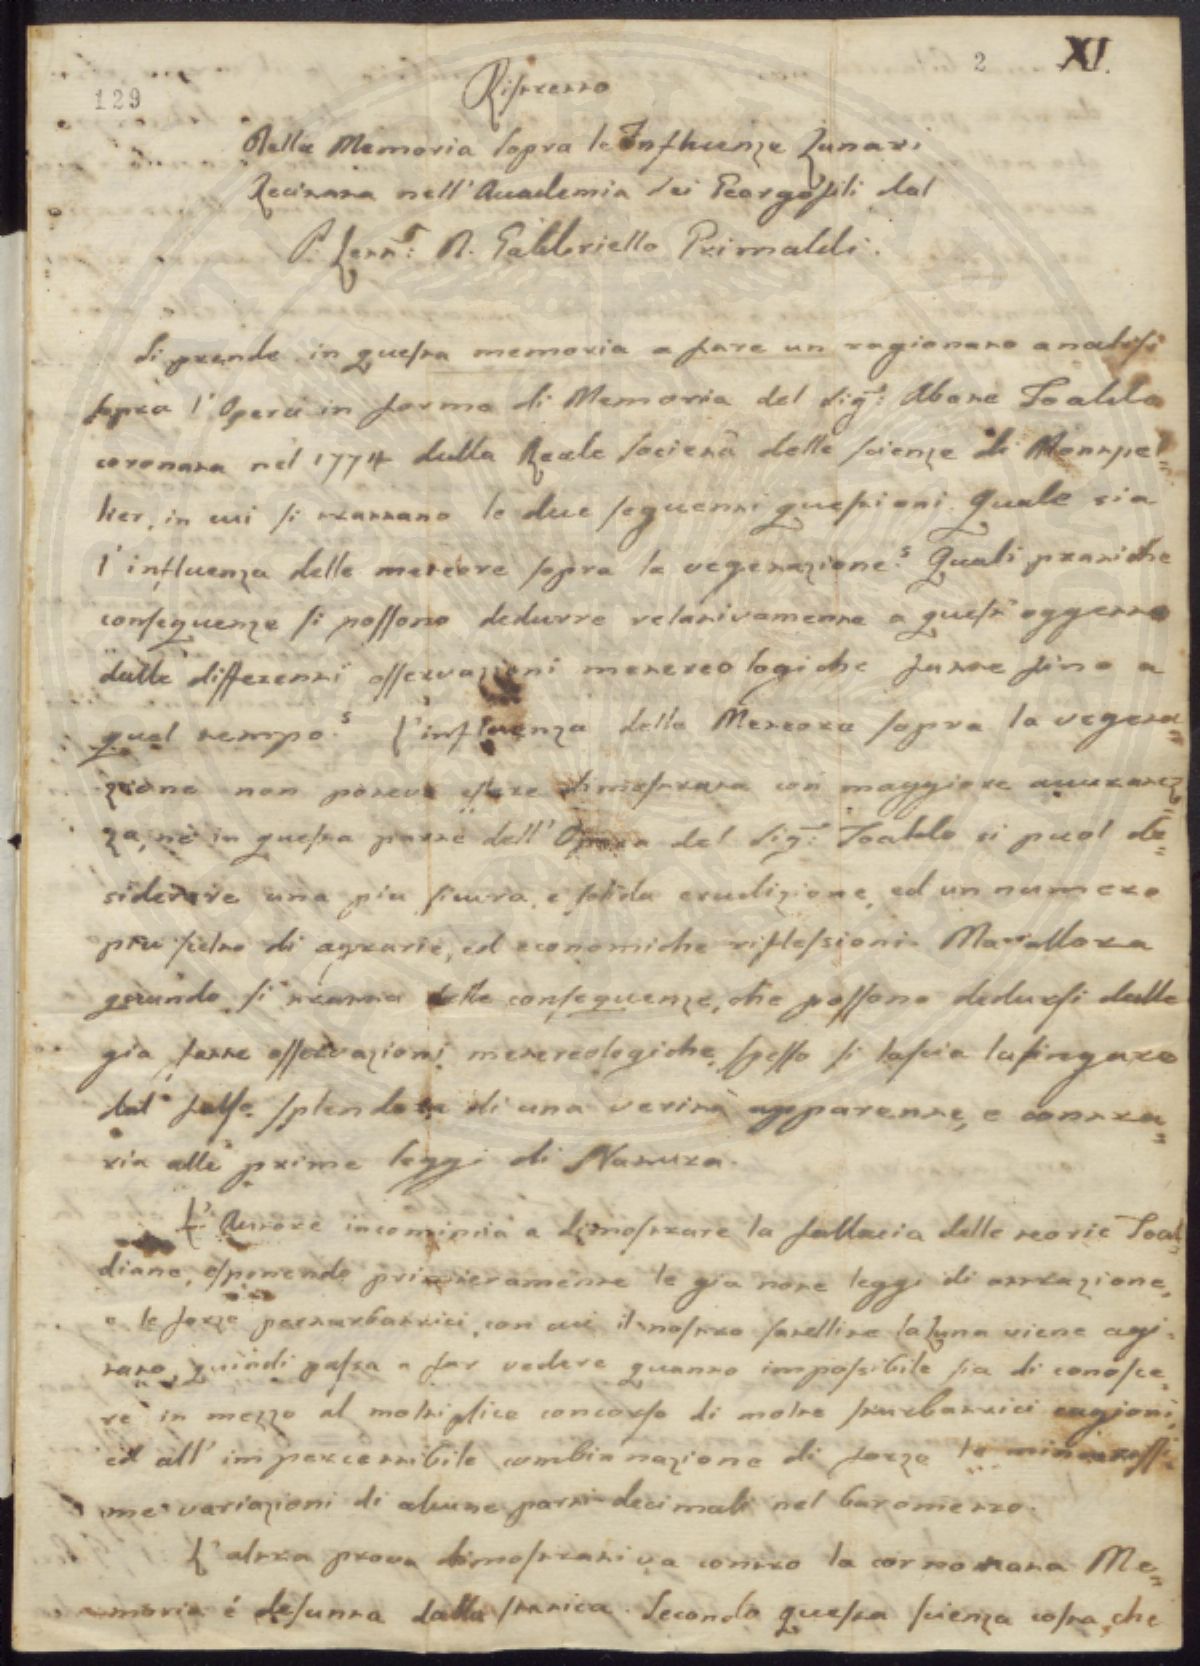 2 XI.
129
Ristretto
Della Memoria sopra le Influenze Lunari
Recitata nell'Accademia dei Georgofili dal
P. Lett.ᵉ D. Gabbriello Grimaldi.
Si prende in questa memoria a fare un ragionato analisi
sopra l'Opera in forma di Memoria del Sig.ʳ Abate Toaldo
coronata nel 1774 dalla Reale Società delle scienze di Montpel=
lier, in cui si trattano le due seguenti questioni. Quale sia
l'influenza delle meteore sopra la vegetazione? Quali pratiche
conseguenze si possono dedurre relativamente a quest'oggetto
dalle differenti osservazioni metereologiche fatte sino a
quel tempo? L'influenza delle Meteore sopra la vegeta=
zione non poteva essere dimostrata con maggiore accuratez=
za, nè in questa parte dell'Opera del Sig.ʳ Toaldo si puol de=
siderare una piu sicura, e solida erudizione, ed un numero
piu scelto di agrarie, ed economiche riflessioni. Ma allora
quando si tratta delle conseguenze, che possono dedursi dalle
gia fatte osservazioni metereologiche, spesso si lascia lusingare
dal falso splendore di una verità apparente, e contra=
ria alle prime leggi di Natura.
L'Autore incomincia a dimostrare la fallacia delle teorie Toal=
diane, esponendo primieramente le gia note leggi di attrazione,
e le forze perturbatrici, con cui il nostro satellite la Luna viene agi=
tato, quindi passa a far vedere quanto impossibile sia di conosce=
re in mezzo al moltiplice concorso di molte sturbatrici cagioni,
ed all'impercettibile combinazione di forze le minutissi=
me variazioni di alcune parti decimali nel barometro.
L'altra prova dimostrativa contro la coronata Me=
moria é desunta dalla statica. Secondo questa scienza costa, che